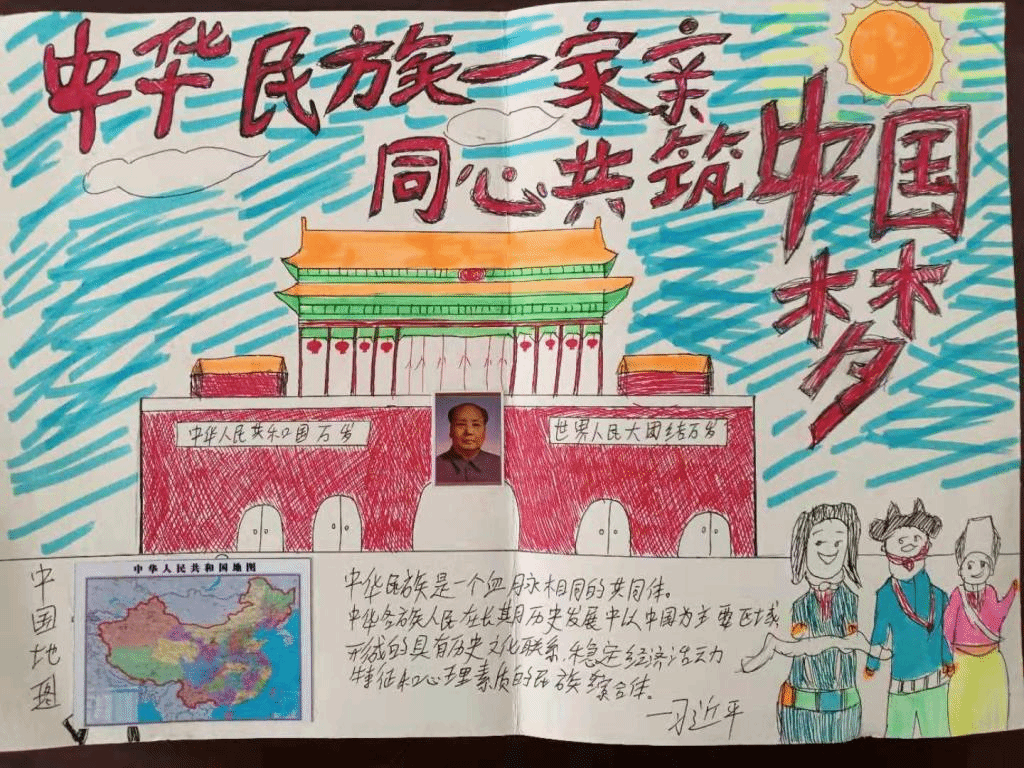 中华民族一家亲
同心共筑中国梦
中华人民共和国万岁
世界人民大团结万岁
中国地图
中华人民共和国地图
中华民族是一个血脉相同的共同体。
中华各族人民在长期历史发展中以中国为主要区域
形成的具有历史文化联系、稳定经济活动
特征和心理素质的民族综合体。
—习近平